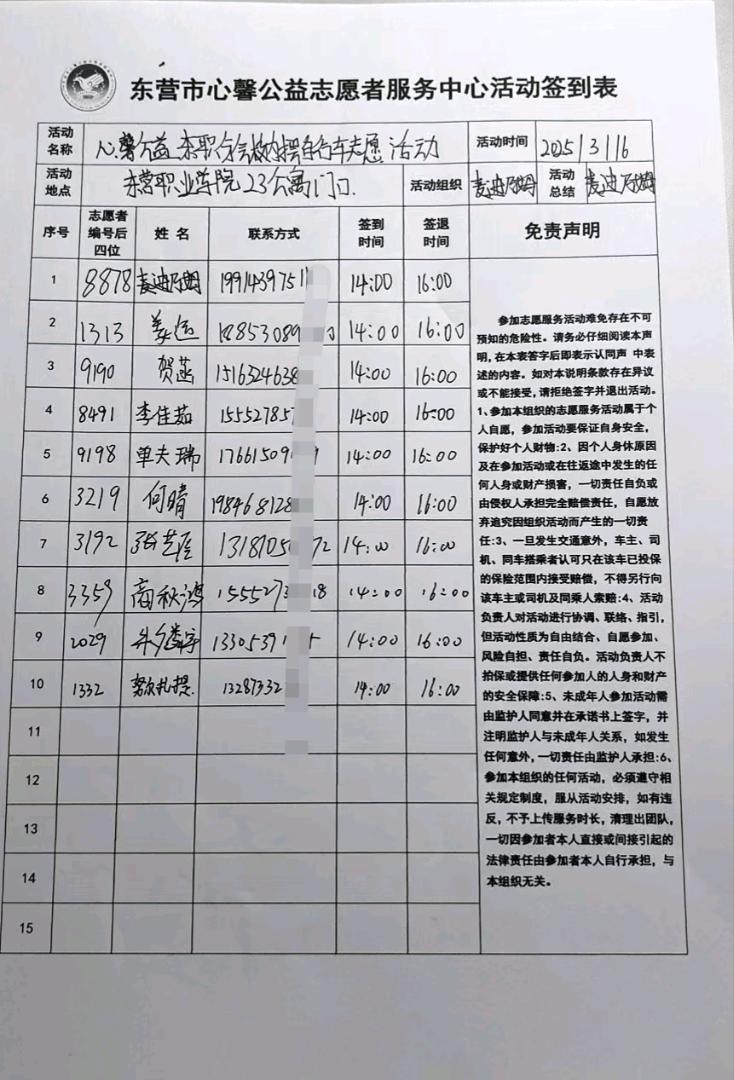 东营市心馨公益志愿者服务中心活动签到表
活动名称 心馨公益东职分会校内摆自行车志愿活动 活动时间 2025/3/16
活动地点 东营职业学院23公寓门口. 活动组织 麦迪乃姆 活动总结 麦迪乃姆
序号 志愿者编号后四位 姓名 联系方式 签到时间 签退时间 免责声明
1 8878 麦迪乃姆 1991439751 14:00 16:00
2 1313 18853089 0 14:00 16:00
3 9190 贺菡 1516324638 14:00 16:00
4 8491 李佳茹 15552785 14:00 16:00
5 9198 单夫瑞 17661509 9 14:00 16:00
6 3219 何晴 198468128 14:00 16:00
7 3192 1318705 72 14:00 16:00
8 3359 商秋鸿 1555273 18 14:00 16:00
9 2029 1330539 5 14:00 16:00
10 1332 努尔扎提 13287332 14:00 16:00
11
12
13
14
15
参加志愿服务活动难免存在不可
预知的危险性。请务必仔细阅读本声
明,在本表签字后即表示认同声 中表
述的内容。如对本说明条款存在异议
或不能接受,请拒绝签字并退出活动。
1、参加本组织的志愿服务活动属于个
人自愿，参加活动要保证自身安全,
保护好个人财物:2、因个人身体原因
及在参加活动或在往返途中发生的任
何人身或财产损害，一切责任自负或
由侵权人承担完全赔偿责任，自愿放
弃追究因组织活动而产生的一切责
任:3、一旦发生交通意外，车主、司
机、同车搭乘者认可只在该车已投保
的保险范围内接受赔偿，不得另行向
该车主或司机及同乘人索赔:4、活动
负责人对活动进行协调、联络、指引,
但活动性质为自由结合、自愿参加、
风险自担、责任自负。活动负责人不
担保或提供任何参加人的人身和财产
的安全保障:5、未成年人参加活动需
由监护人同意并在承诺书上签字，并
注明监护人与未成年人关系，如发生
任何意外,一切责任由监护人承担:6、
参加本组织的任何活动，必须遵守相
关规定制度，服从活动安排，如有违
反，不予上传服务时长，清理出团队,
一切因参加者本人直接或间接引起的
法律责任由参加者本人自行承担，与
本组织无关。